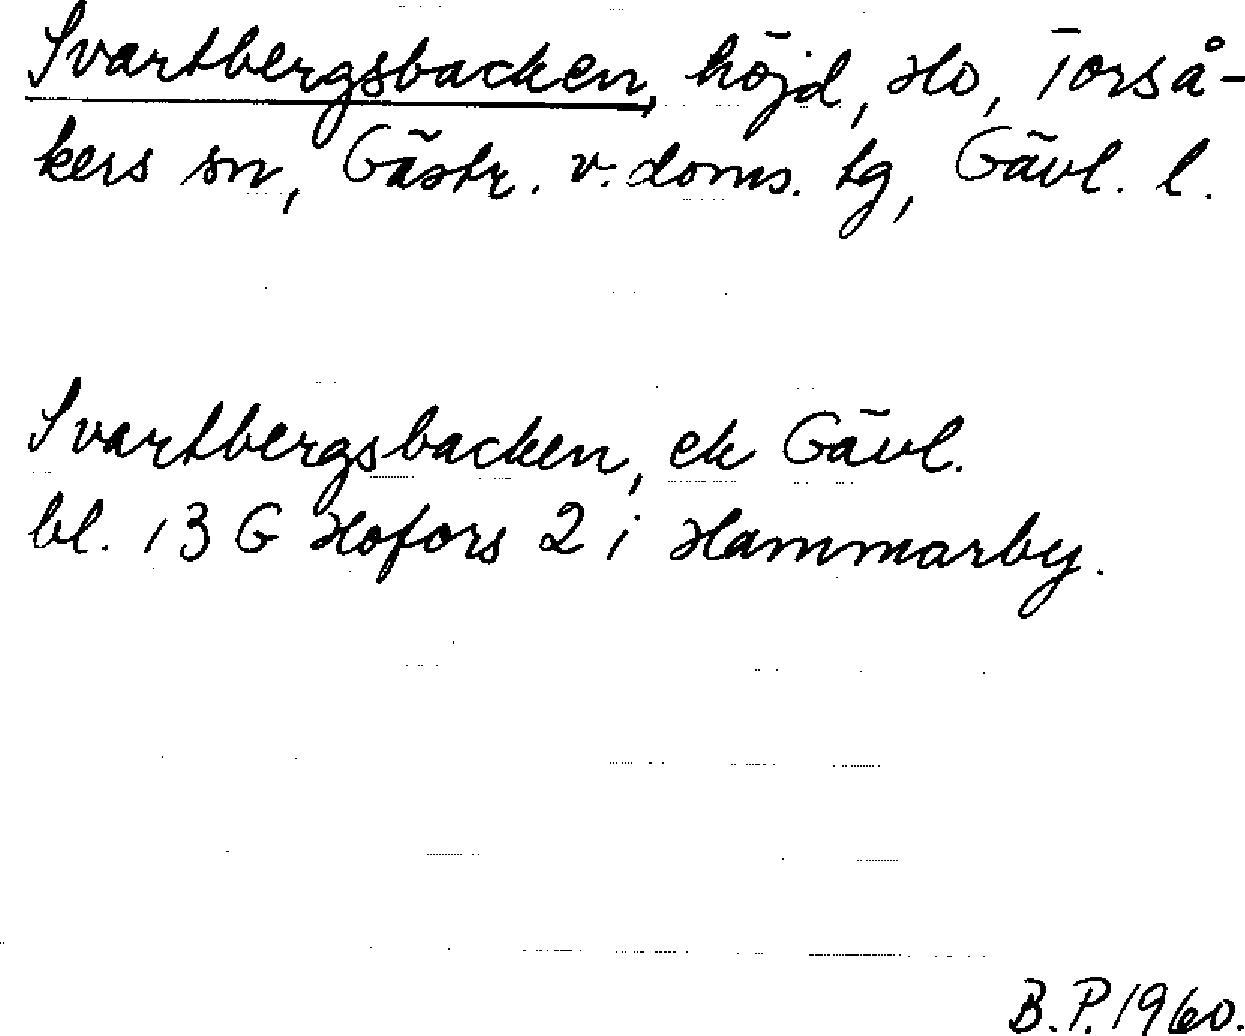 Svartbergsbacken, höjd, Ho, Torså-
kers sn, Gästr. v. doms. tg, Gävl. l.
Svartbergsbacken, ek Gävl.
bl. 13 G Hofors 2 i Hammarby.
B.P. 1960.